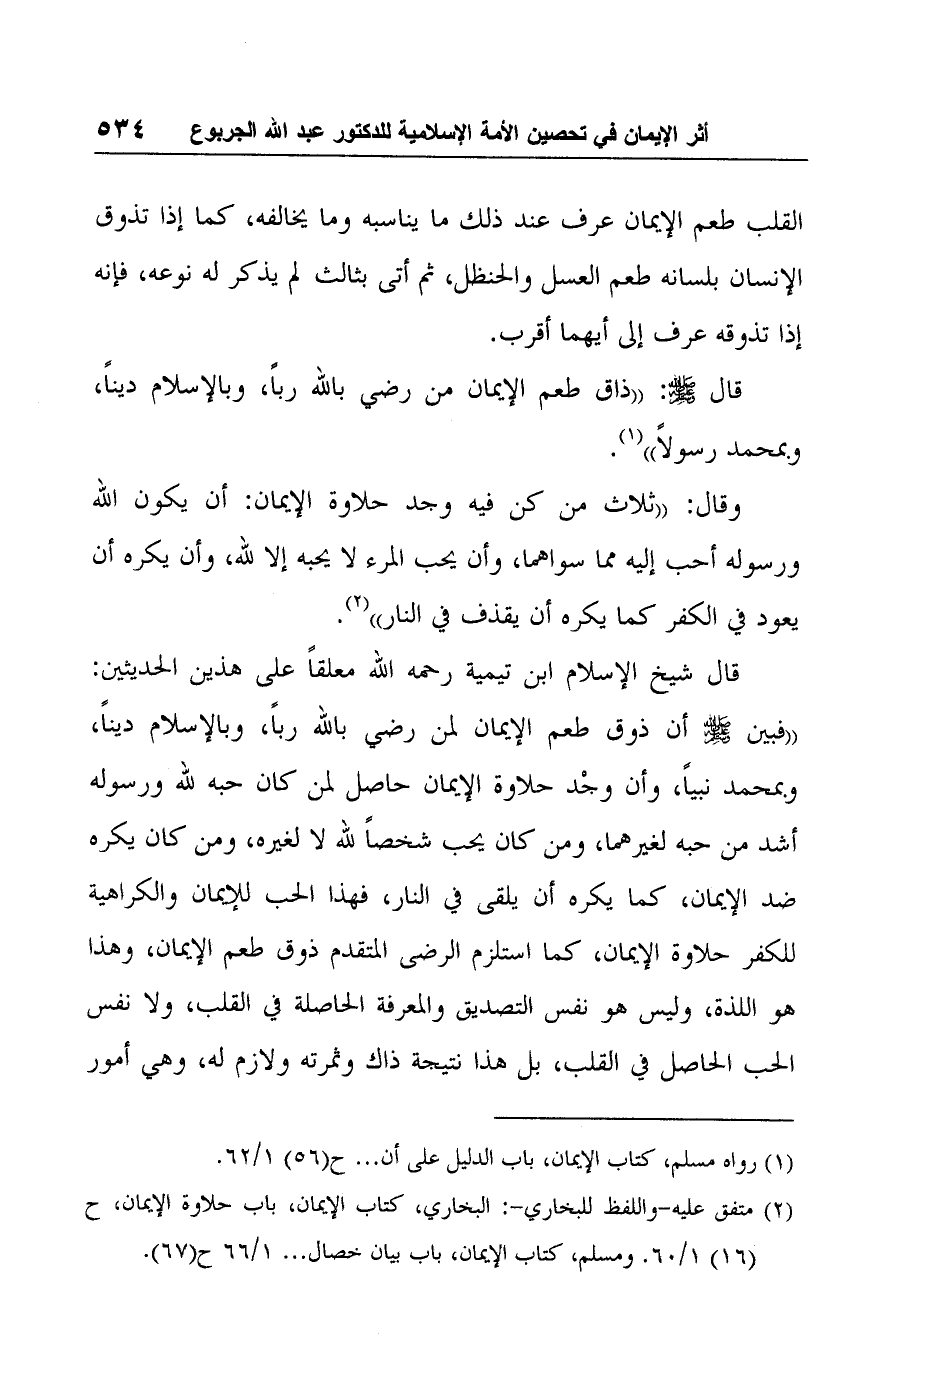 أثر الإيمان في تحصين الأمة الإسلامية للدكتور عبد الله الجربوع ٥٣٤
القلب طعم الإيمان عرف عند ذلك ما يناسبه وما يخالفه، كما إذا تذوق
الإنسان بلسانه طعم العسل والحنظل، ثم أتى بثالث لم يذكر له نوعه، فإنه
إذا تذوقه عرف إلى أيهما أقرب.
قال ﷺ: ((ذاق طعم الإيمان من رضي بالله رباً، وبالإسلام ديناً،
وبمحمد رسولاً))(١).
وقال: ((ثلاث من كن فيه وجد حلاوة الإيمان: أن يكون الله
ورسوله أحب إليه مما سواهما، وأن يحب المرء لا يحبه إلا لله، وأن يكره أن
يعود في الكفر كما يكره أن يقذف في النار))(٢).
قال شيخ الإسلام ابن تيمية رحمه الله معلقاً على هذين الحديثين:
((فبين ﷺ أن ذوق طعم الإيمان لمن رضي بالله رباً، وبالإسلام ديناً،
وبمحمد نبياً، وأن وجْد حلاوة الإيمان حاصل لمن كان حبه لله ورسوله
أشد من حبه لغيرهما، ومن كان يحب شخصاً لله لا لغيره، ومن كان يكره
ضد الإيمان، كما يكره أن يلقى في النار، فهذا الحب للإيمان والكراهية
للكفر حلاوة الإيمان، كما استلزم الرضى المتقدم ذوق طعم الإيمان، وهذا
هو اللذة، وليس هو نفس التصديق والمعرفة الحاصلة في القلب، ولا نفس
الحب الحاصل في القلب، بل هذا نتيجة ذاك وثمرته ولازم له، وهي أمور
(١) رواه مسلم، كتاب الإيمان، باب الدليل على أن... ح(٥٦) ٦٢/١.
(٢) متفق عليه-واللفظ للبخاري-: البخاري، كتاب الإيمان، باب حلاوة الإيمان، ح
(١٦) ٦٠/١. ومسلم، كتاب الإيمان، باب بيان خصال... ٦٦/١ ح(٦٧).